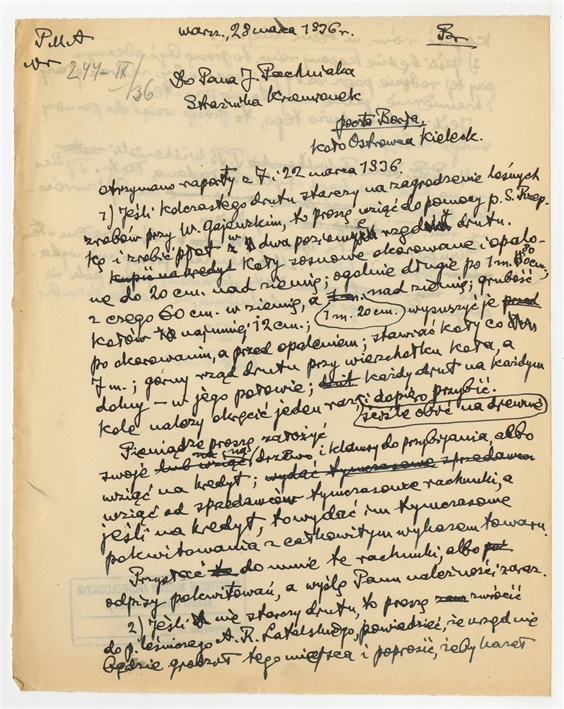 PMA
Nr 244-IV/36
Warsz., 28 marca 1936 r.
Br.
Do Pana J. Pachniaka
Strażnika Krzemionek
poczta Borja,
koło Ostrowca Kieleck.
Otrzymano raporty z 7 i 22 marca 1936.
1) Jeśli kolczastego drutu starczy na zagrodzenie leśnych
zrobów przy W. Gajewskim, to proszę wziąć do pomocy p. S. Rzep-
kę i zrobić płot w dwa poziomy rzędy drutu.
kupić na kredyt Koły sosnowe okorowane i opalo-
ne do 20 cm. nad ziemią; ogólnie długie po 1 m. 80 cm;
z czego 60 cm. w ziemię, a nad ziemią; grubość
1 m. 20 cm.
kołów najmniej 12 cm.; wysuszyć je przed
po okorowaniu, a przed opaleniem; stawiać koły co
7 m.; górny rząd drutu przy wierzchołku koła, a
dolny – w jego połowie; każdy drut na każdym
kole należy okręcić jeden raz i dopiero przybić.
ściśle obić na drewnie
Pieniądze proszę założyć
swoje lub wziąć na drzewo i klamry do przybijania, albo
wziąć na kredyt; wydać tymczasowe sprzedawca
wziąć od sprzedawców tymczasowe rachunki, a
jeśli na kredyt, to wydać im tymczasowe
pokwitowania z całkowitym wykazem towaru.
Przysłać do mnie te rachunki, albo
odpisy pokwitowań, a wyślę Panu należność zaraz.
2) Jeśli nie starczy drutu, to proszę zwrócić
do p. leśniczego A. R. Latalskiego, powiedzieć, że urząd nie
będzie grodził tego miejsca i poprosić, żeby kazał